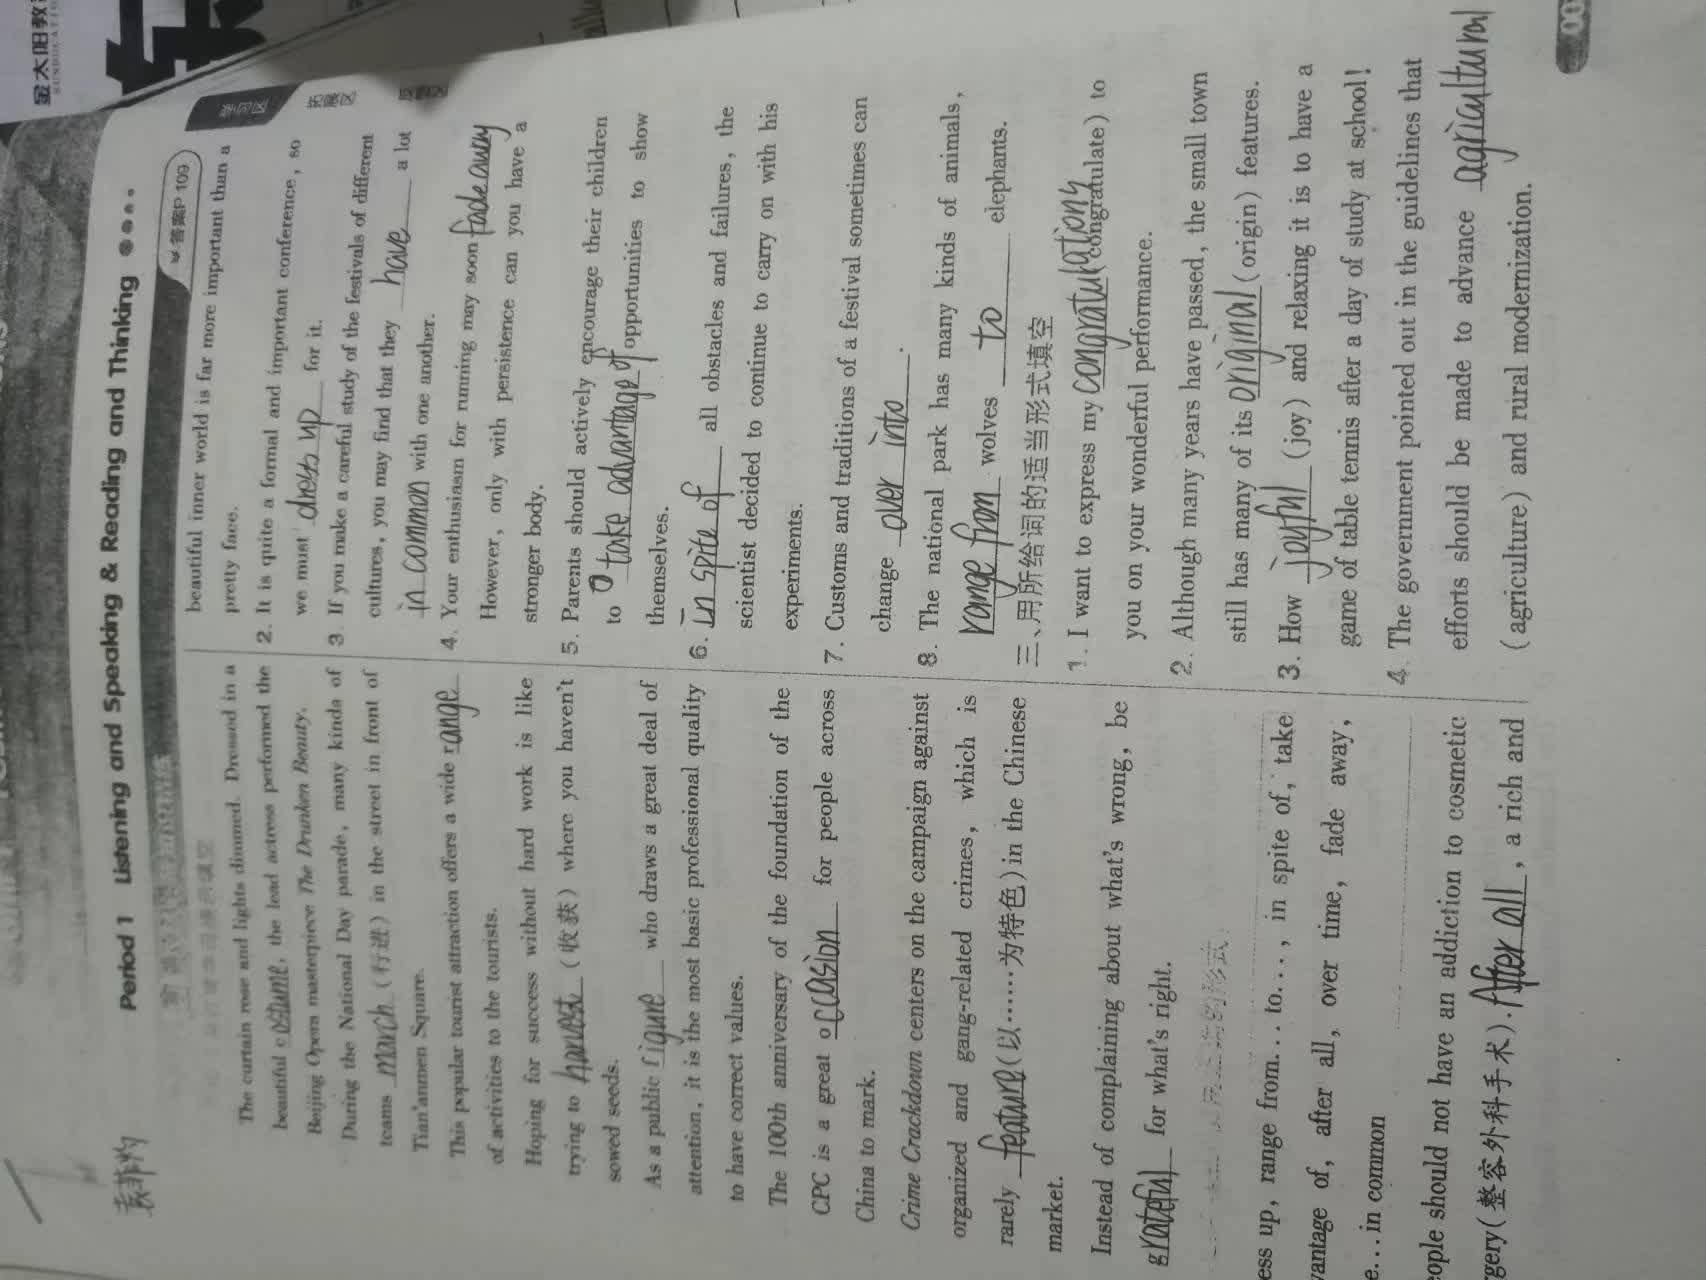 金太阳教
Period 1 Listening and Speaking & Reading and Thinking
答案P109
The curtain rose and lights dimmed. Dressed in a
beautiful costume, the lead actress performed the
Beijing Opera masterpiece The Drunken Beauty.
During the National Day parade, many kinds of
teams march (行进) in the street in front of
Tian'anmen Square.
This popular tourist attraction offers a wide range
of activities to the tourists.
Hoping for success without hard work is like
trying to harvest (收获) where you haven't
sowed seeds.
As a public figure who draws a great deal of
attention, it is the most basic professional quality
to have correct values.
The 100th anniversary of the foundation of the
CPC is a great occasion for people across
China to mark.
Crime Crackdown centers on the campaign against
organized and gang-related crimes, which is
rarely feature (以……为特色) in the Chinese
market.
Instead of complaining about what's wrong, be
grateful for what's right.
ess up, range from...to..., in spite of, take
vantage of, after all, over time, fade away,
e...in common
ople should not have an addiction to cosmetic
rgery(整容外科手术). After all, a rich and
beautiful inner world is far more important than a
pretty face.
2. It is quite a formal and important conference, so
we must dress up for it.
3. If you make a careful study of the festivals of different
cultures, you may find that they have a lot
in common with one another.
4. Your enthusiasm for running may soon fade away
However, only with persistence can you have a
stronger body.
5. Parents should actively encourage their children
to take advantage of opportunities to show
themselves.
6. In spite of all obstacles and failures, the
scientist decided to continue to carry on with his
experiments.
7. Customs and traditions of a festival sometimes can
change over into.
8. The national park has many kinds of animals,
range from wolves to elephants.
三、用所给词的适当形式填空
1. I want to express my congratulations (congratulate) to
you on your wonderful performance.
2. Although many years have passed, the small town
still has many of its original (origin) features.
3. How joyful (joy) and relaxing it is to have a
game of table tennis after a day of study at school!
4. The government pointed out in the guidelines that
efforts should be made to advance agricultural
(agriculture) and rural modernization.
00